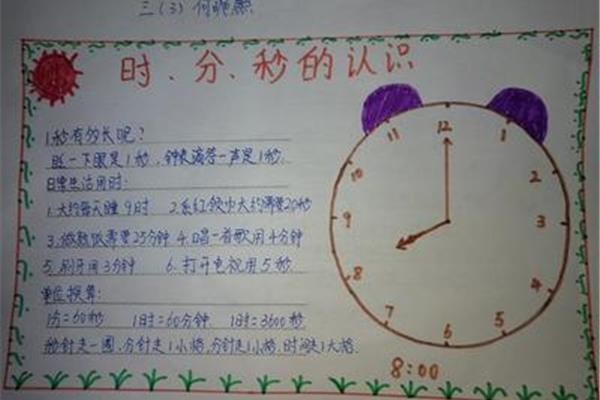 三（3）何晓熙
时、分、秒的认识
1秒有多长呢？
眨一下眼是1秒，钟表滴答一声是1秒.
日常生活用时：
1.大约每天睡9时 2.系红领巾大约需要20秒
3.做数纸需要25分钟 4.唱一首歌用4分钟
5.刷牙用3分钟 6.打开电视用5秒
单位换算：
1分=60秒 1时=60分钟 1时=3600秒
秒针走一圈，分针走1小格，分针走1小格，时间走1大格.
12
1
2
3
4
5
6
7
8
9
10
11
8:00